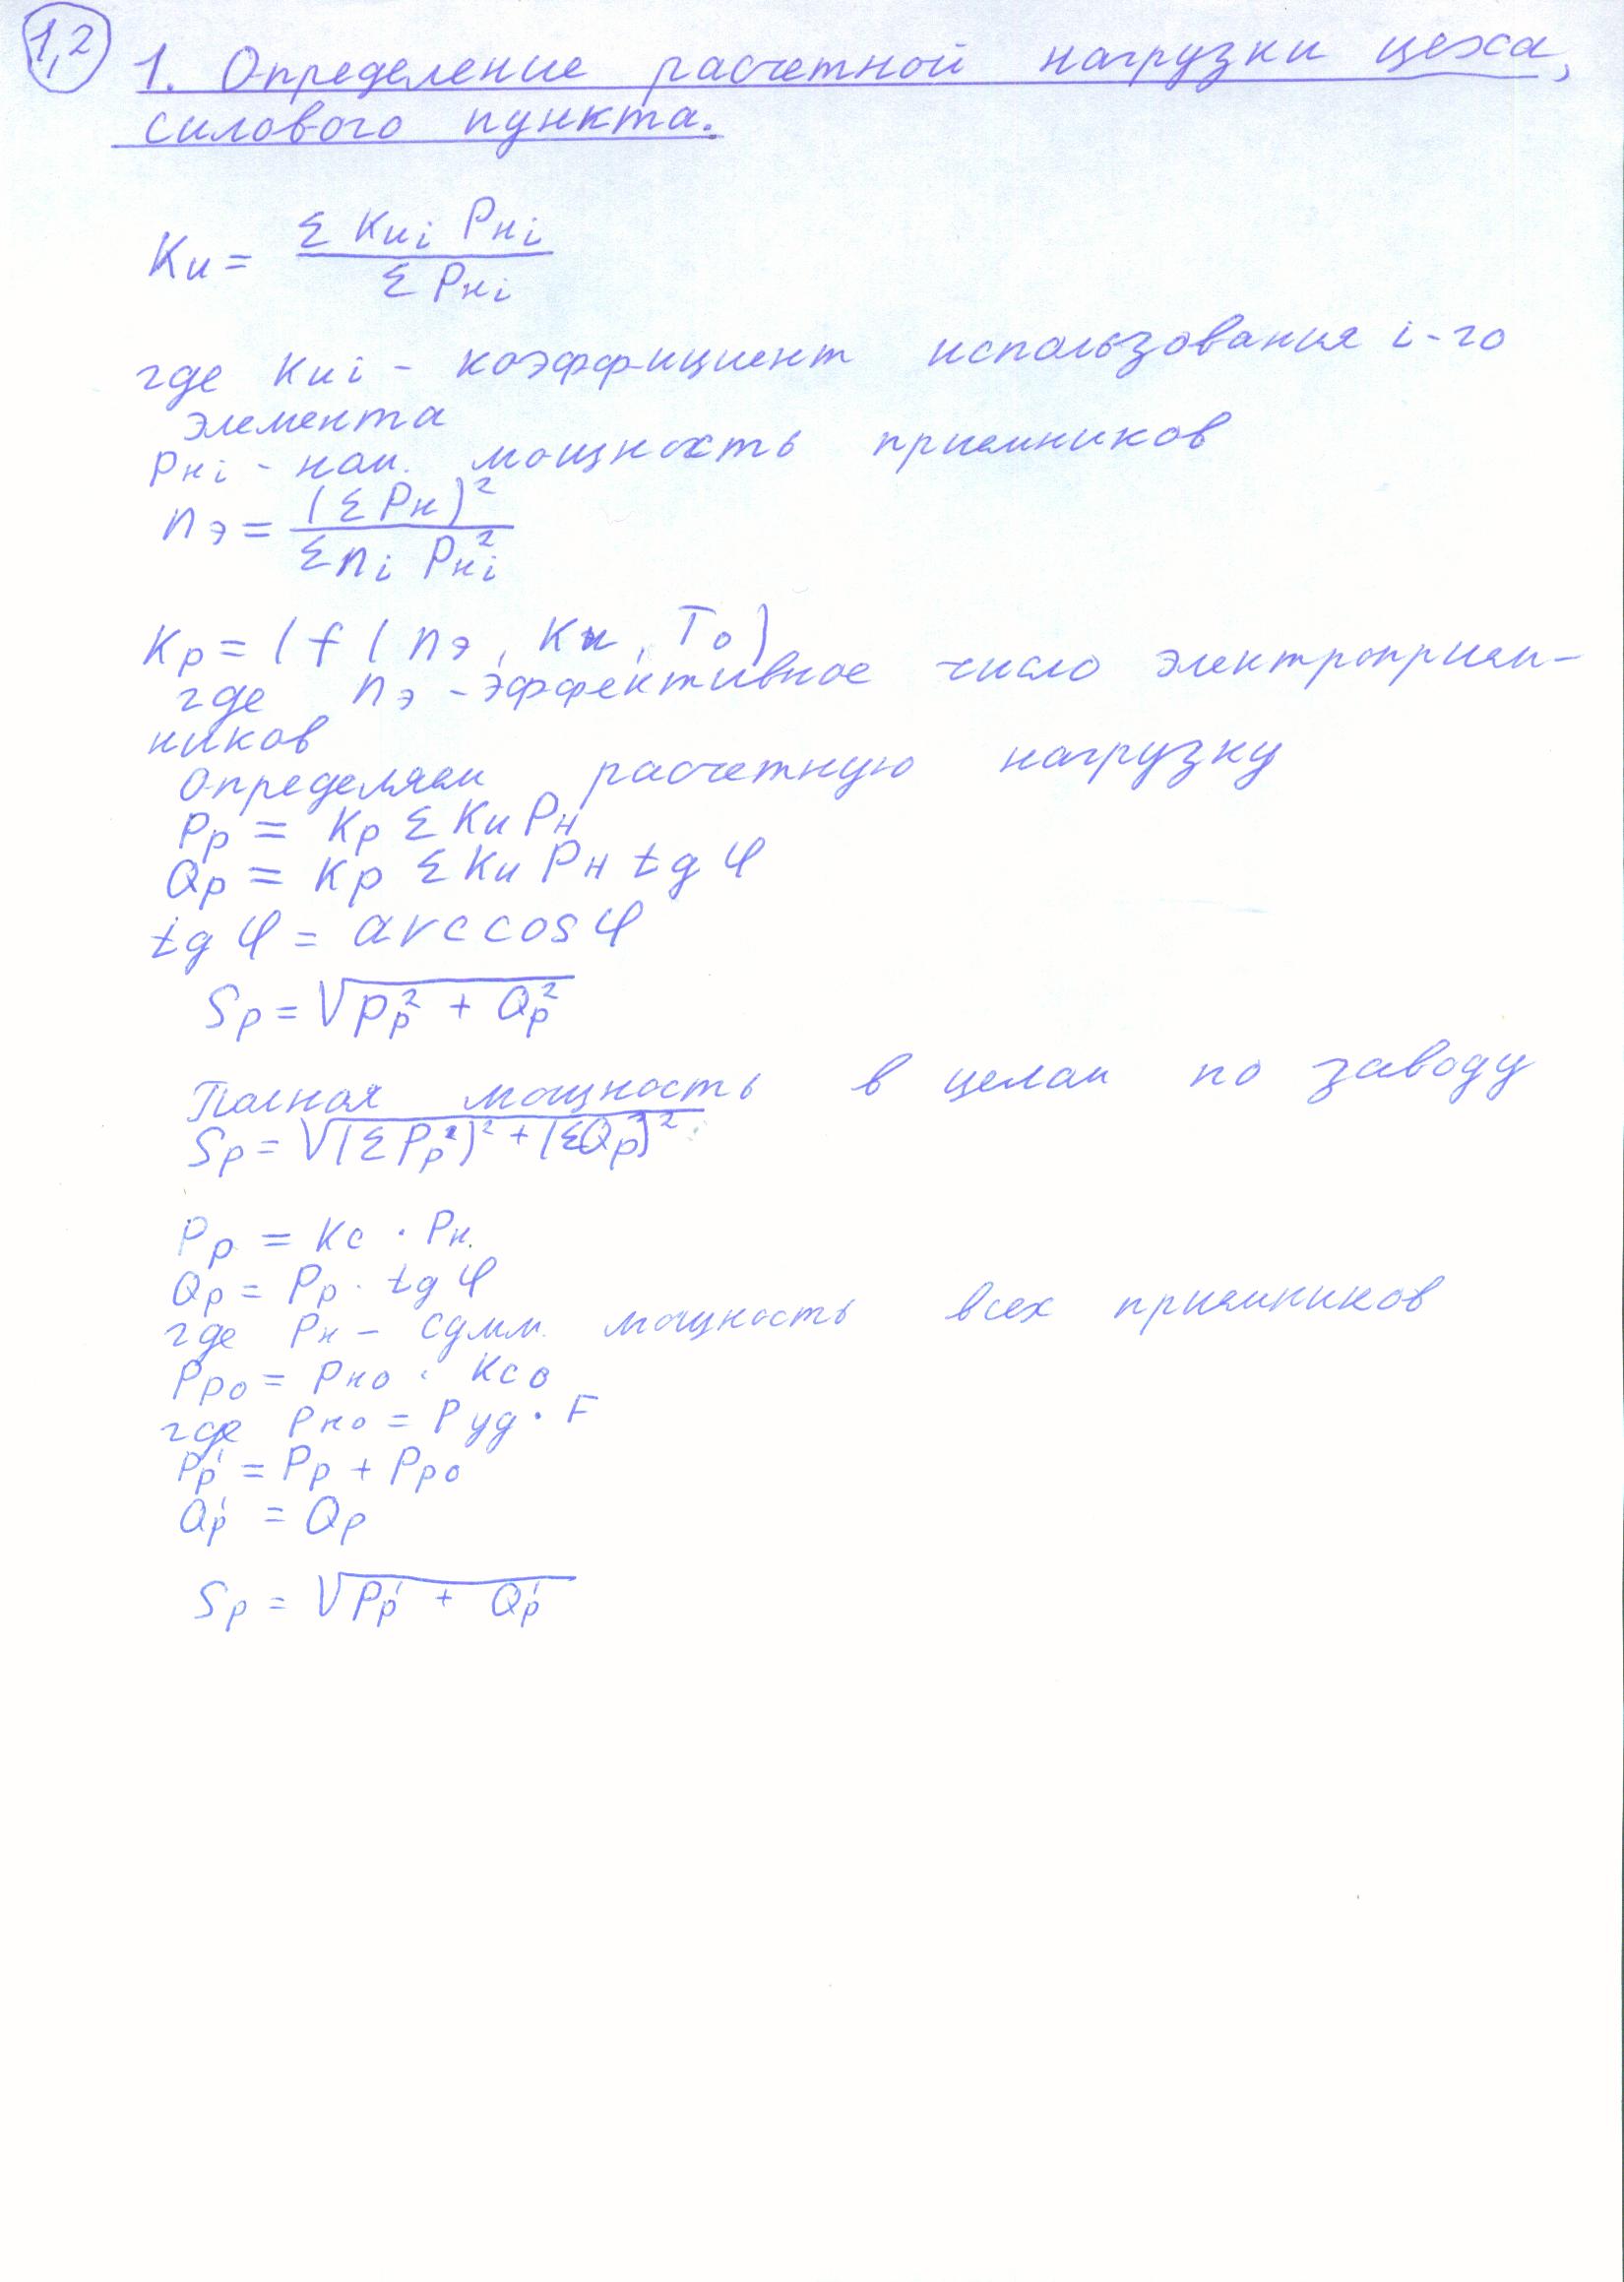 1,2
1. Определение расчетной нагрузки цеха,
силового пункта.
Kи = Σ Kиi Pнi / Σ Pнi
где Kиi - коэффициент использования i-го
элемента
Pнi - ном. мощность приемников
nэ = (Σ Pн)² / Σ ni Pнi²
Kр = (f (nэ, Kи, To)
где nэ - эффективное число электроприем-
ников
Определяем расчетную нагрузку
Pр = Kр Σ Kи Pн
Qр = Kр Σ Kи Pн tg φ
tg φ = arccos φ
Sр = √(Pр² + Qр²)
Полная мощность в целом по заводу
Sр = √((Σ Pр²)² + (ΣQр²)²)
Pр = Kc · Pн
Qр = Pр · tg φ
где Pн - сумм. мощность всех приемников
Pро = Pно · Kсо
где Pно = Pуд · F
Pр' = Pр + Pро
Qр' = Qр
Sр = √(Pр' + Qр')